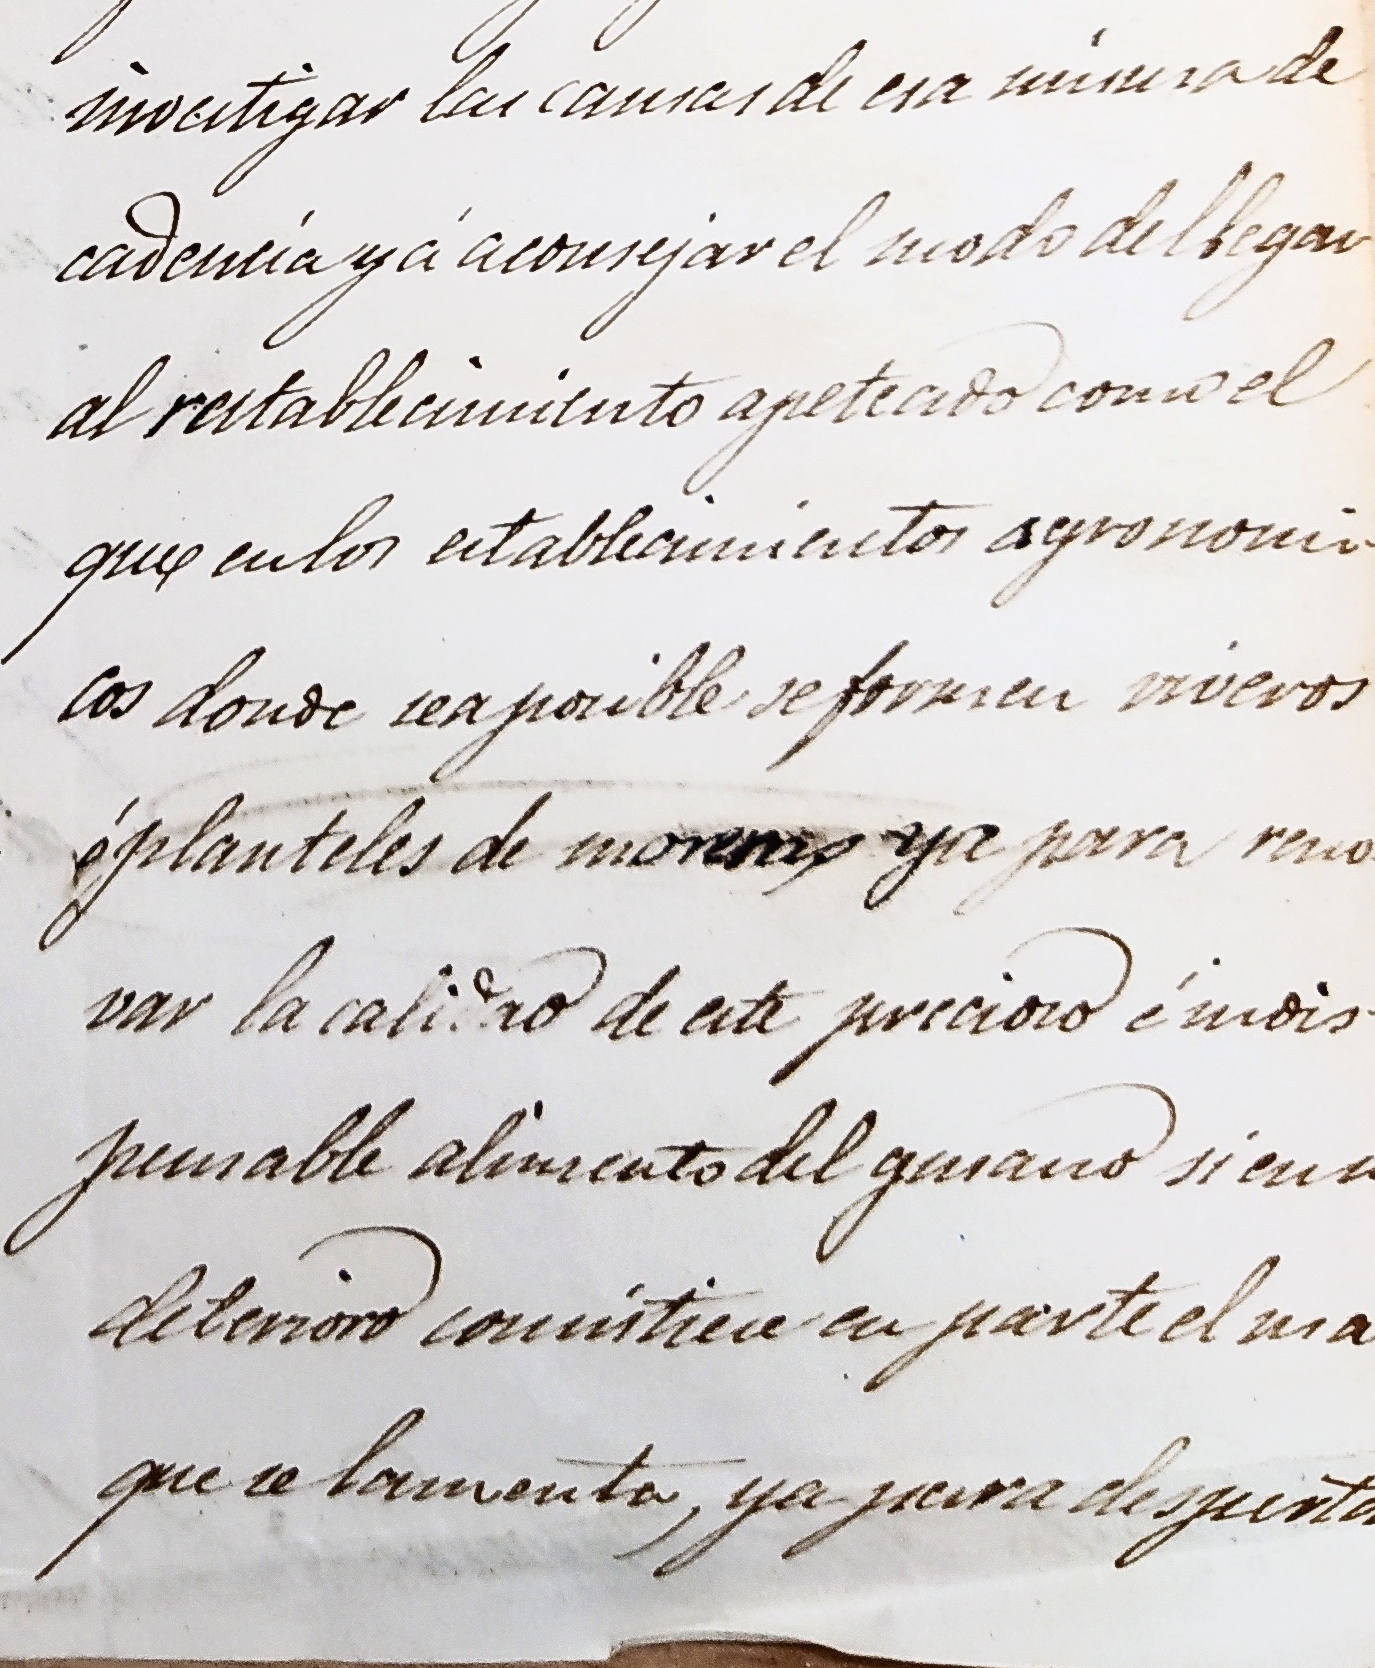 investigar las causas de esa misma de
cadencia y á aconsejar el modo de llegar
al restablecimiento apetecido como el
que en los establecimientos agronomi-
cos donde sea posible se formen viveros
é planteles de moreras ya para reno
var la calidad de este precioso é indis-
pensable alimento del gusano si en su
deterioro consistiese en parte el mal
que se lamenta, ya para desperta